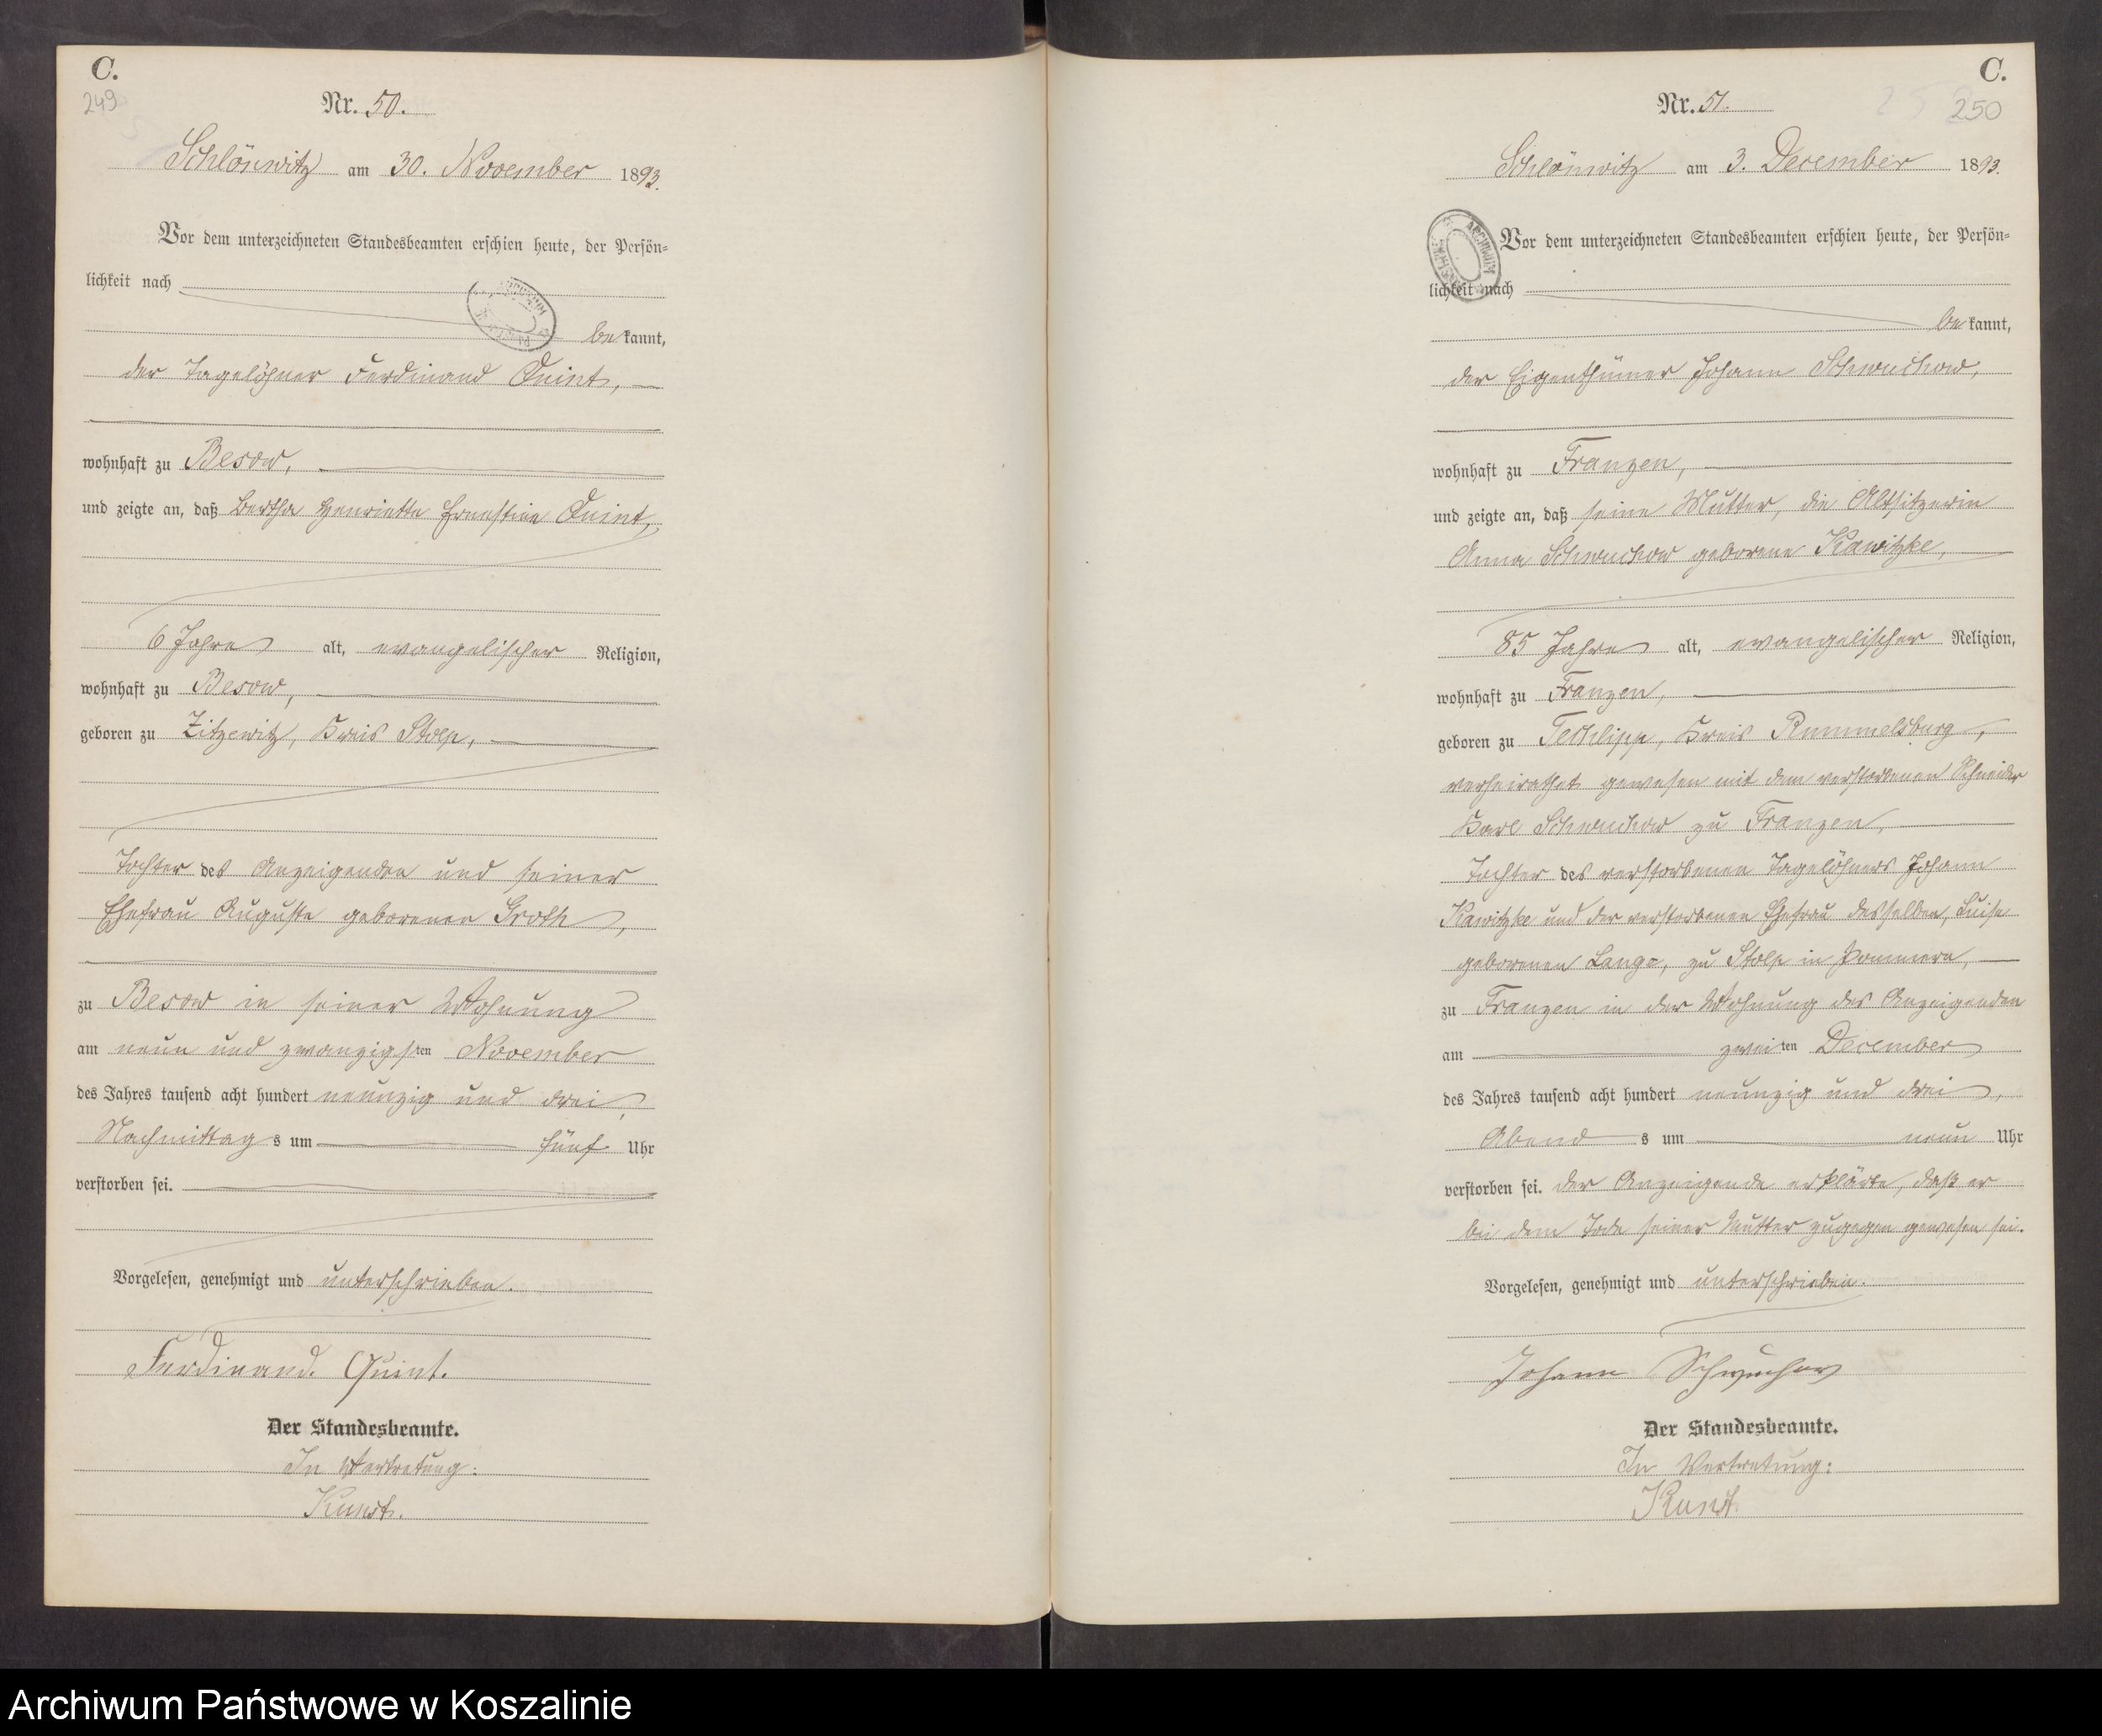 C.
249
Nr. 50.
Schlönwitz am 30. November 1893.
Vor dem unterzeichneten Standesbeamten erschien heute, der Persön-
lichkeit nach
bekannt,
der Tagelöhner Ferdinand Quint,
wohnhaft zu Besow,
und zeigte an, daß Bertha Henriette Ernstine Quint,
6 Jahre alt, evangelischer Religion,
wohnhaft zu Besow,
geboren zu Zitzewitz, Kreis Stolp,
Tochter des Anzeigenden und seiner
Ehefrau Auguste geborenen Groth,
zu Besow in seiner Wohnung
am neun und zwanzigsten November
des Jahres tausend acht hundert neunzig und drei,
Nachmittags um fünf Uhr
verstorben sei.
Vorgelesen, genehmigt und unterschrieben.
Ferdinand. Quint.
Der Standesbeamte.
In Vertretung:
Kunst.
C.
250
Nr. 51.
Schlönwitz am 3. December 1893.
Vor dem unterzeichneten Standesbeamten erschien heute, der Persön-
lichkeit nach
bekannt,
der Eigenthümer Johann Schwuchow,
wohnhaft zu Franzen,
und zeigte an, daß seine Mutter, die Altsitzerin
Anna Schwuchow geborene Kawitzke,
85 Jahre alt, evangelischer Religion,
wohnhaft zu Franzen,
geboren zu Techlipp, Kreis Rummelsburg,
verheirathet gewesen mit dem verstorbenen Schneider
Karl Schwuchow zu Franzen,
Tochter des verstorbenen Tagelöhners Johann
Kawitzke und der verstorbenen Ehefrau desselben, Luise
geborenen Lange, zu Stolp in Pommern,
zu Franzen in der Wohnung des Anzeigenden
am zweiten December
des Jahres tausend acht hundert neunzig und drei,
Abends um neun Uhr
verstorben sei. Der Anzeigende erklärte, daß er
bei dem Tode seiner Mutter zugegen gewesen sei.
Vorgelesen, genehmigt und unterschrieben.
Johann Schwuchow
Der Standesbeamte.
In Vertretung:
Kunst
Archiwum Państwowe w Koszalinie